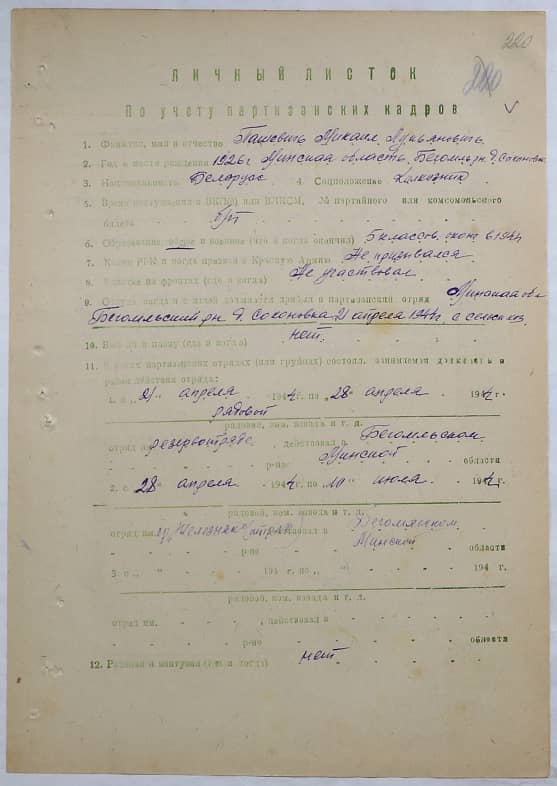 220
220
ЛИЧНЫЙ ЛИСТОК
По учету партизанских кадров
1. Фамилия, имя и отчество Пашевич Михаил Лукьянович
2. Год и место рождения 1926 г Минская область, Бегомль. рн. д. Соконовка
3. Национальность Белорус. 4. Соцположение Колхозник
5. Время вступления в ВКП(б) или ВЛКСМ, № партийного или комсомольского
билета б/п
6. Образование общее и военное (что и когда окончил) 5 классов. оконч. в 1941
7. Каким РВК и когда призван в Красную Армию Не призывался
8. Участие на фронтах (где и когда) Не участвовал
9. Откуда, когда и с какой должности прибыл в партизанский отряд Минская обл
Бегомльский рн. д. Соконовка 21 апреля 1944 г. с сельхоз.
10. Был ли в плену (где и когда) нет.
11. В каких партизанских отрядах (или группах) состоял, занимаемая должность и
район действия отряда:
1. с „21“ апреля 1944 г. по „28“ апреля 1944 г.
рядовой
рядовой, ком. взвода и т. д.
отряд действовал в Бегомльском
р-не Минской области
2. с 28 апреля 1944 г. по „10“ июля 1944 г.
рядовой, ком. взвода и т. д.
отряд им. Железняк действовал в Бегомльском
р-не Минской области
3. с „ “ 194 г. по „ “ 194 г.
рядовой, ком. взвода и т. д.
отряд им. , действовал в
р-не области
12. Ранения и контузия (где и когда) нет